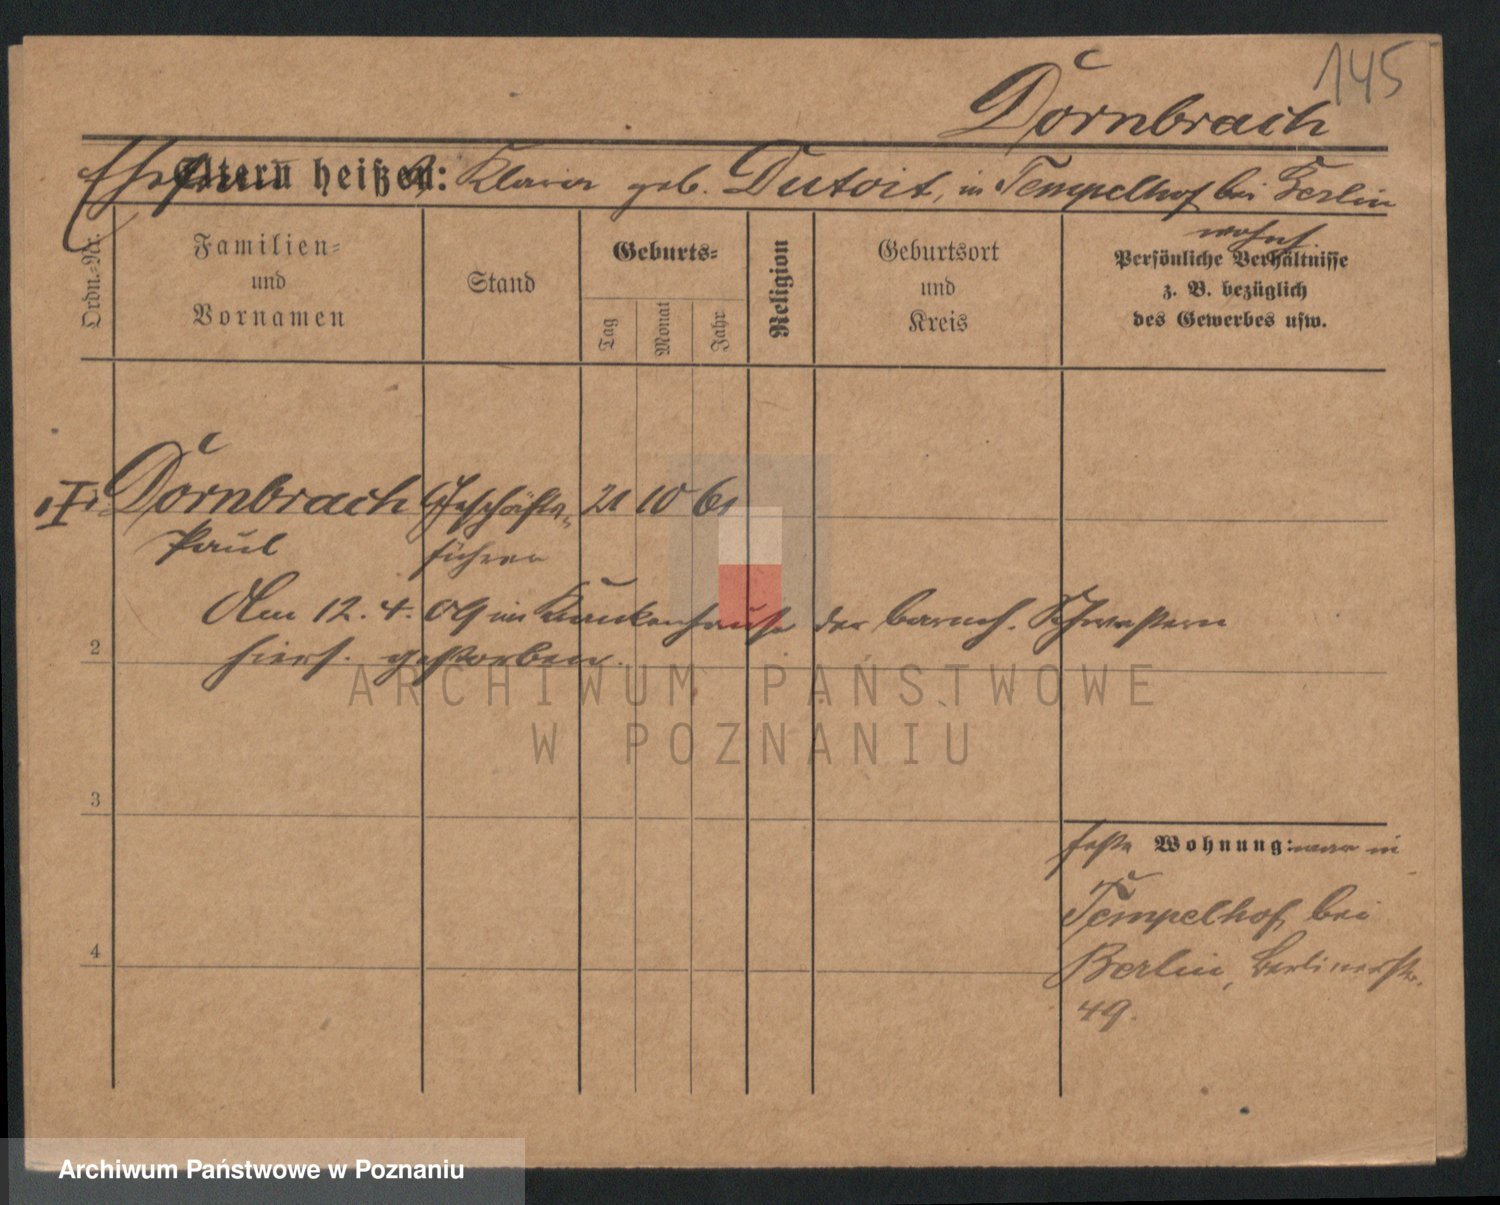 145
Dornbrach
Ehefrau heißt: Klara geb. Dutoit, in Tempelhof bei Berlin
wohnh.
Eltern heißen:
Ordn.-Nr.
Familien-
und
Vornamen
Stand
Geburts-
Tag
Monat
Jahr
Religion
Geburtsort
und
Kreis
Persönliche Verhältnisse
z. B. bezüglich
des Gewerbes usw.
Dornbrach Geschäfts- 21 10 61
Paul führer
Am 12. 4. 09 im Krankenhause der barmh. Schwestern
2
hiers. gestorben.
3
4
feste Wohnung: war in
Tempelhof bei
Berlin, Berlinerstr.
49.
ARCHIWUM PAŃSTWOWE
W POZNANIU
Archiwum Państwowe w Poznaniu